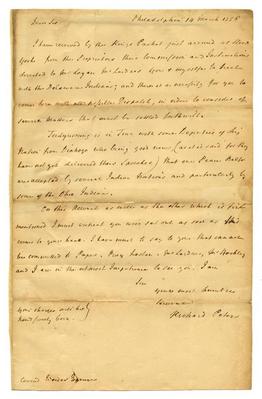 Dear Sir
Philadelphia 14 March 1758
I have received by the Kings Packet just arrived at New
York from the Proprietors their Commission and Instructions
directed to Mr Logan Mr Lardner you & myself to treat
with the Delaware Indians; and there is a necessity for you to
come here with all possible Dispatch, in order to consider of
several matters that must be settled forthwith.
Teedyuscung is in Town with some Deputies of
Nation from who bring good news (as it is said for they
have not yet delivered their Speeches) that our Peace Belts
are accepted by several Indian Nations and particularly by
some of the Ohio Indians.
On this Account as well as the other which is first
mentioned I must entreat you to set out as soon as this
comes to your hand. I have more to say to you that cannot
be committed to Paper. Pray hasten. Mr Lardner, Mr Hockley
and I are in the utmost Impatience to see you. I am
Sir
yours most humble
Servant
Richard Peters
Your charges will be
handsomely born.
Conrad Weiser Esquire